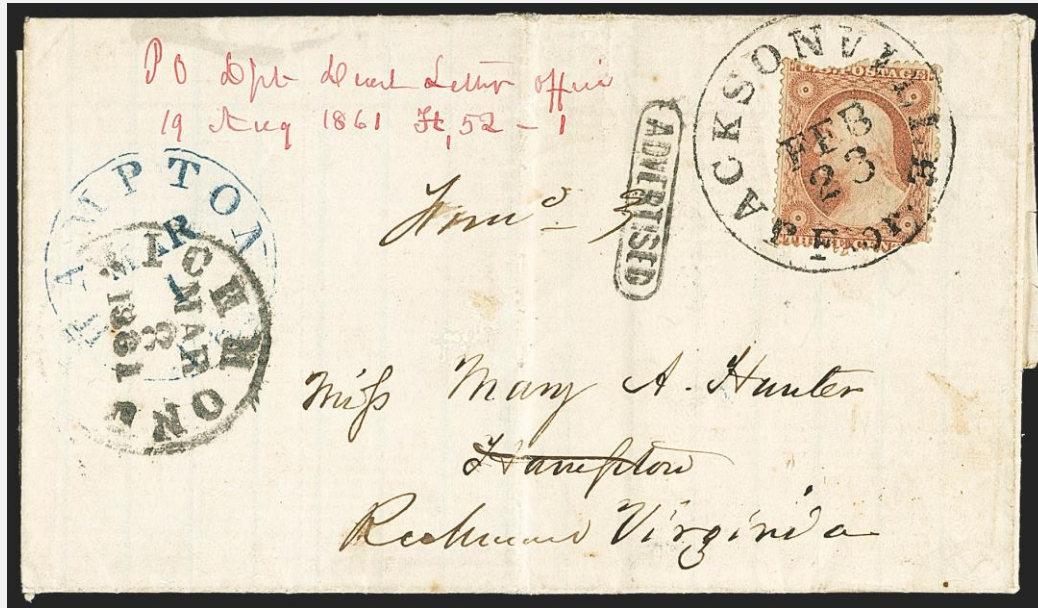 PO Dpt Dead Letter Office
19 Aug 1861 52 - 1
JACKSONVILLE
FEB
23
U.S. POSTAGE
ADVERTISED
HAMPTON
MAR
RICHMOND
MAR
8
1861
Miſs Mary A. Hunter
Hampton
Richmond Virginia